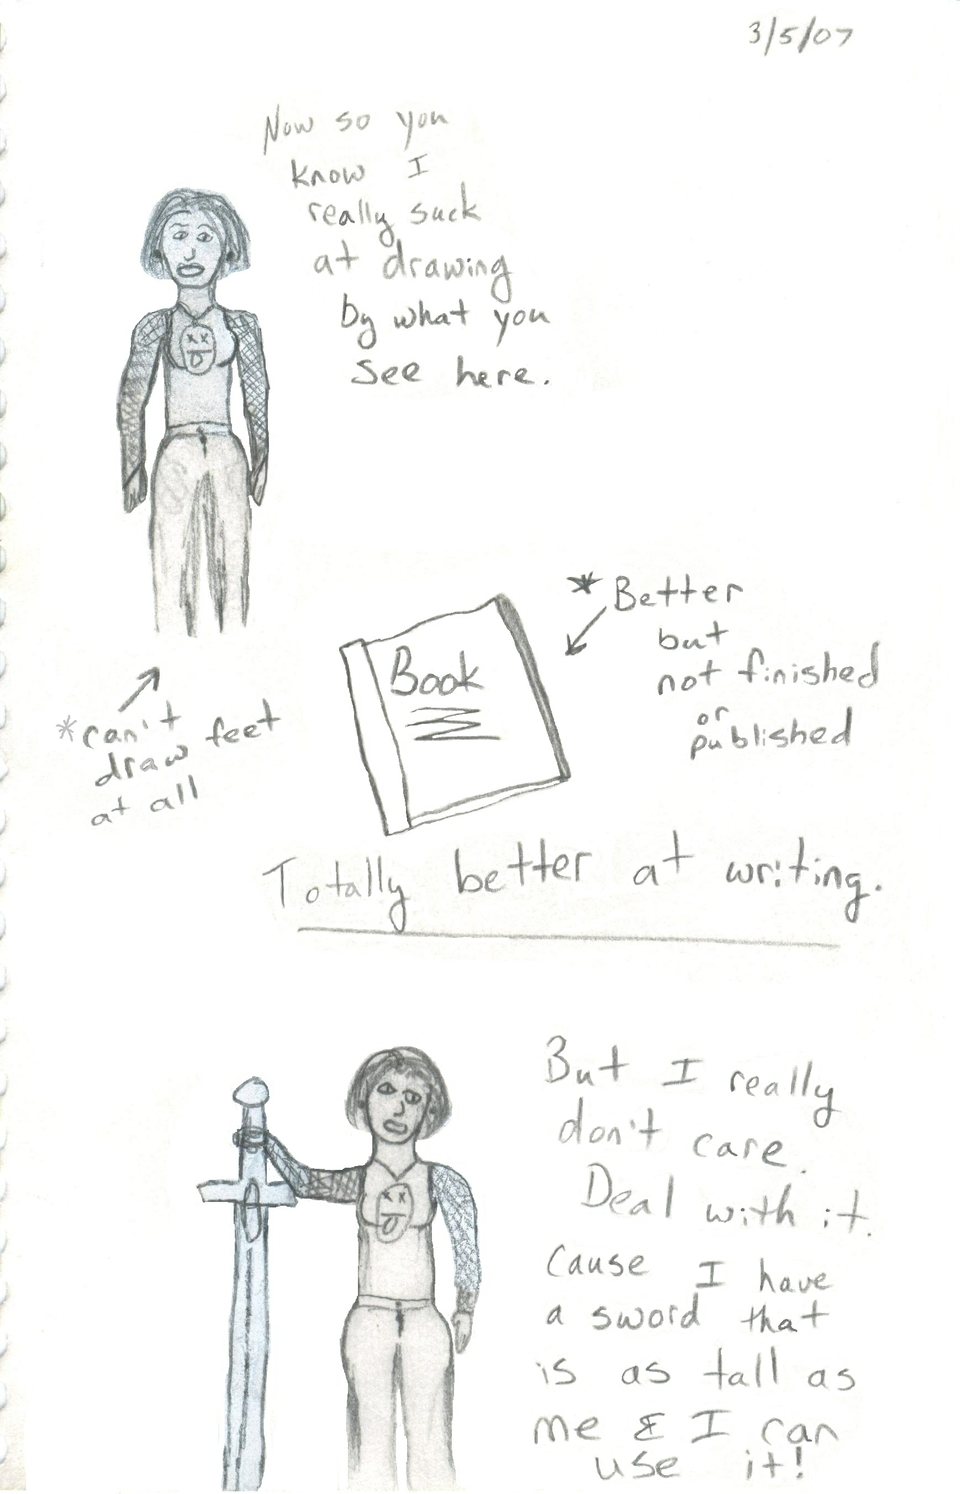 3/5/07
Now so you
know I
really suck
at drawing
by what you
see here.
*Better
but
not finished
or
published
Book
*can't
draw feet
at all
Totally better at writing.
But I really
don't care.
Deal with it.
Cause I have
a sword that
is as tall as
me & I can
use it!